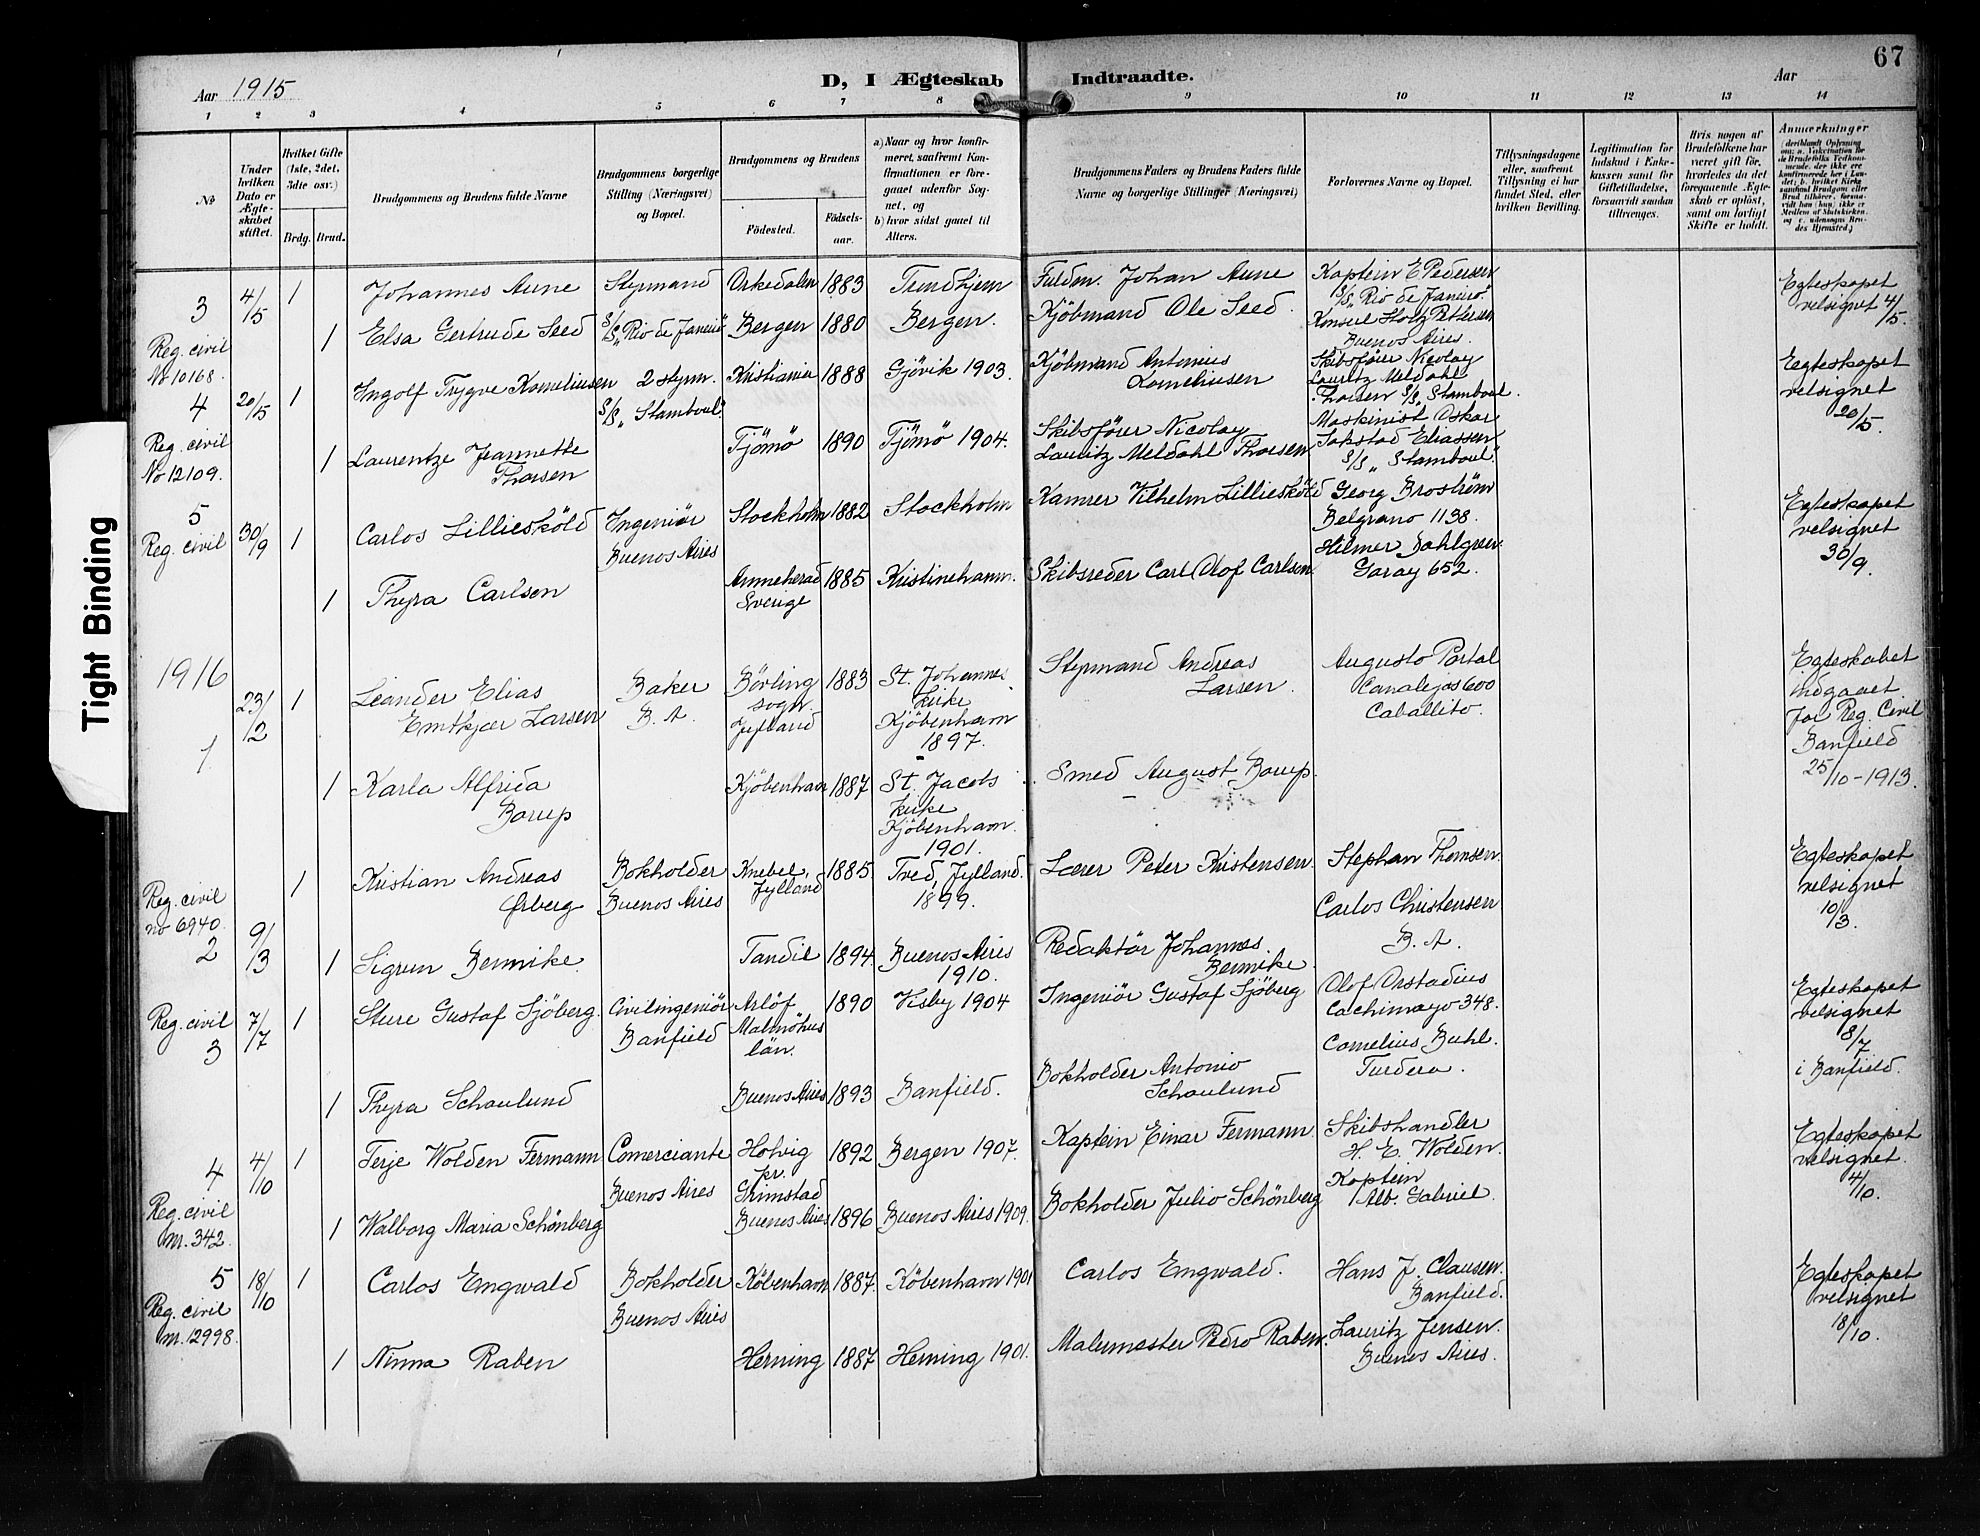 67
Aar 1915
D, I Ægteskab Indtraadte.
Aar
1 2 3 4 5 6 7 8 9 10 11 12 13 14
No
Under hvilken Dato er Ægteskabet stiftet.
Hvilket Gifte (1ste, 2det, 3die osv.)
Brdg. Brud.
Brudgommens og Brudens fulde Navne
Brudgommens borgerlige Stilling (Næringsvei) og Bopæl.
Brudgommens og Brudens
Fødested.
Fødselsaar.
a) Naar og hvor konfirmeret, saafremt Konfirmationen er foregaaet udenfor Sognet, og
b) hvor sidst gaaet til Alters.
Brudgommens Faders og Brudens Faders fulde Navne og borgerlige Stillinger (Næringsvei)
Forlovernes Navne og Bopæl.
Tillysningsdagene eller, saafremt Tillysning ei har fundet Sted, efter hvilken Bevilling.
Legitimation for Indskud i Enkekassen samt for Giftetilladelse, forsaavidt saadan tiltrænges.
Hvis nogen af Brudefolkene har været gift før, hvorledes da det foregaaende Ægteskab er opløst, samt om lovligt Skifte er holdt.
Anmærkninger
3 4/5 1 Johannes Aune Styrmand Orkedalen 1883 Trondhjem Fuldm. Johan Aune Kaptein E Pedersen
S/S „Rio de Janeiro"
Egteskapet
velsignet 4/5.
1 Elsa Gertrude Seed S/S „Rio de Janeiro" Bergen 1880 Bergen. Kjöbmand Ole Seed. Konsul Holtz Petersen
Buenos Aires.
Reg. civil
No 10168.
4 20/5 1 Ingolf Trygve Korneliussen 2 styrm. Kristiania 1888 Gjövik 1903. Kjöbmand Antonius
Korneliusen
S/S „Stamboul"
Skibsförer Nicolay
Lauritz Meldahl
Thorsen S/S „Stamboul.
Egteskapet
velsignet
20/5.
Reg. civil
No 12109.
1 Laurentze Jeannette
Thorsen
Tjömö 1890 Tjömö 1904. Skibsförer Nicolay
Lauritz Meldahl Thorsen
Maskinist Oskar
Jakstad Eliassen
S/S „Stamboul".
5
Reg. civil 30/9 1 Carlos Lilliesköld Ingeniör
Buenos Aires
Stockholm 1882 Stockholm Kamrer Vilhelm Lilliesköld Georg Broström
Belgrano 1138.
Egteskapet
velsignet
30/9.
1 Thyra Carlsen Anneherad
Sverige
1885 Kristinehamn. Skibsreder Carl Olof Carlsen Hilmer Dahlgren
Garay 652.
1916
1. 23/12 1 Leander Elias
Emtkjær Larsen
Baker
B. A.
Bövling
sogn.
Jylland
1883 St. Johannes
kirke
Kjöbenhavn
1897.
Styrmand Andreas
Larsen.
Augusto Portal
Canalejas 600
Caballito.
Egteskabet
indgaaet
for Reg. Civil
Banfield
25/10-1913.
1 Karla Alfrida
Borup
Kjöbenhavn 1887 St. Jacobs
kirke
Kjöbenhavn.
1901.
Smed August Borup.
Reg. civil
no 6940.
2 9/3 1 Kristian Andreas
Ørberg
Bokholder
Buenos Aires
Knebel,
Jylland
1885. Tved, Jylland.
1899.
Lærer Peter Kristensen. Stephan Thomsen.
Carlos Christensen
B. A.
Egteskapet
velsignet
10/3.
1 Sigrun Bennike. Tandil 1894. Buenos Aires
1910.
Redaktör Johannes
Bennike.
Reg. civil
3 7/7 1 Sture Gustaf Sjöberg. Civilingeniör
Banfield
Arlöf
Malmöhus
län.
1890 Visby 1904 Ingeniör Gustaf Sjöberg Olof Orstadius
Cachimayo 348.
Egteskapet
velsignet
8/7
i Banfield.
1 Thyra Schaulund Buenos Aires 1893 Banfield. Bokholder Antonio
Schaulund
Cornelius Buhl.
Turdera.
4 4/10 1 Terje Wolden Fermann Comerciante
Buenos Aires
Holvig
pr.
Grimstad
1892 Bergen 1907. Kaptein Einar Fermann Skibshandler
H. E. Wolden.
Egteskapet
velsignet.
4/10.
Reg. civil
nr. 342.
1 Walborg Maria Schönberg Buenos Aires 1896 Buenos Aires 1909. Bokholder Julio Schönberg Kaptein
Alb. Gabriel.
5 18/10 1 Carlos Engwald Bokholder
Buenos Aires
Köbenhavn 1887. Köbenhavn 1901 Carlos Engwald. Hans J. Clausen.
Banfield.
Egteskapet
velsignet
18/10.
Reg. civil
nr. 12998.
1 Ninna Raben Herning 1887 Herning 1901. Malermester Pedro Raben. Lauritz Jensen.
Buenos Aires.
Tight Binding